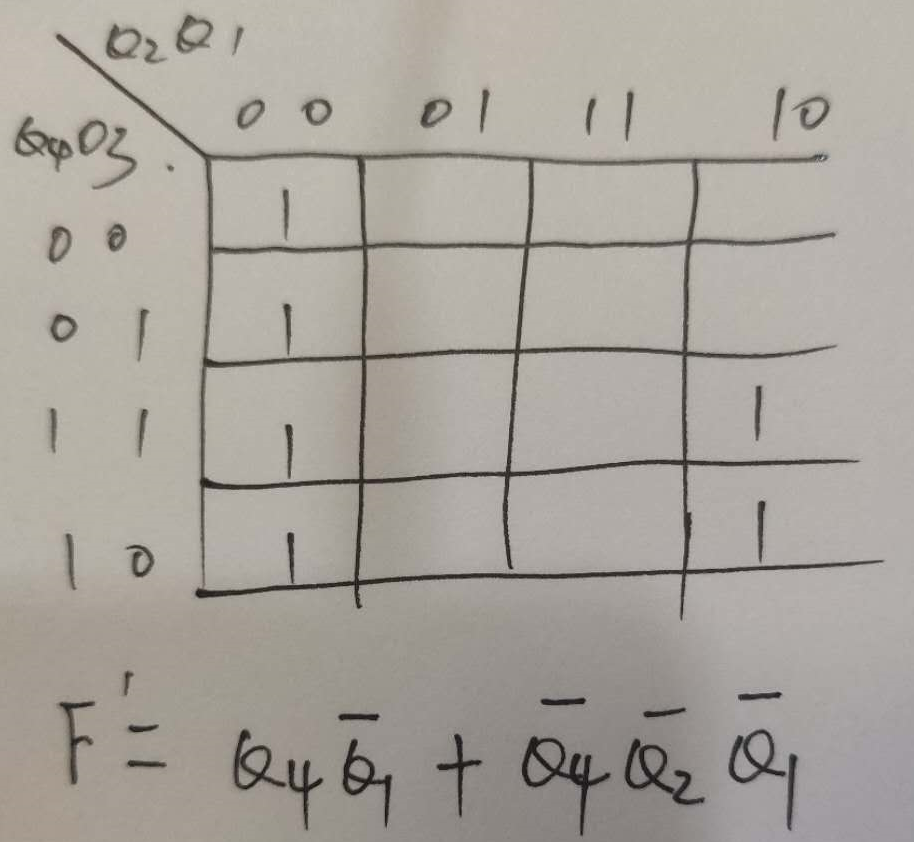 Q₂Q₁
00 01 11 10
Q₄Q₃
00 1
01 1
11 1 1
10 1 1
F' = Q₄Q̄₁ + Q̄₄Q̄₂Q̄₁